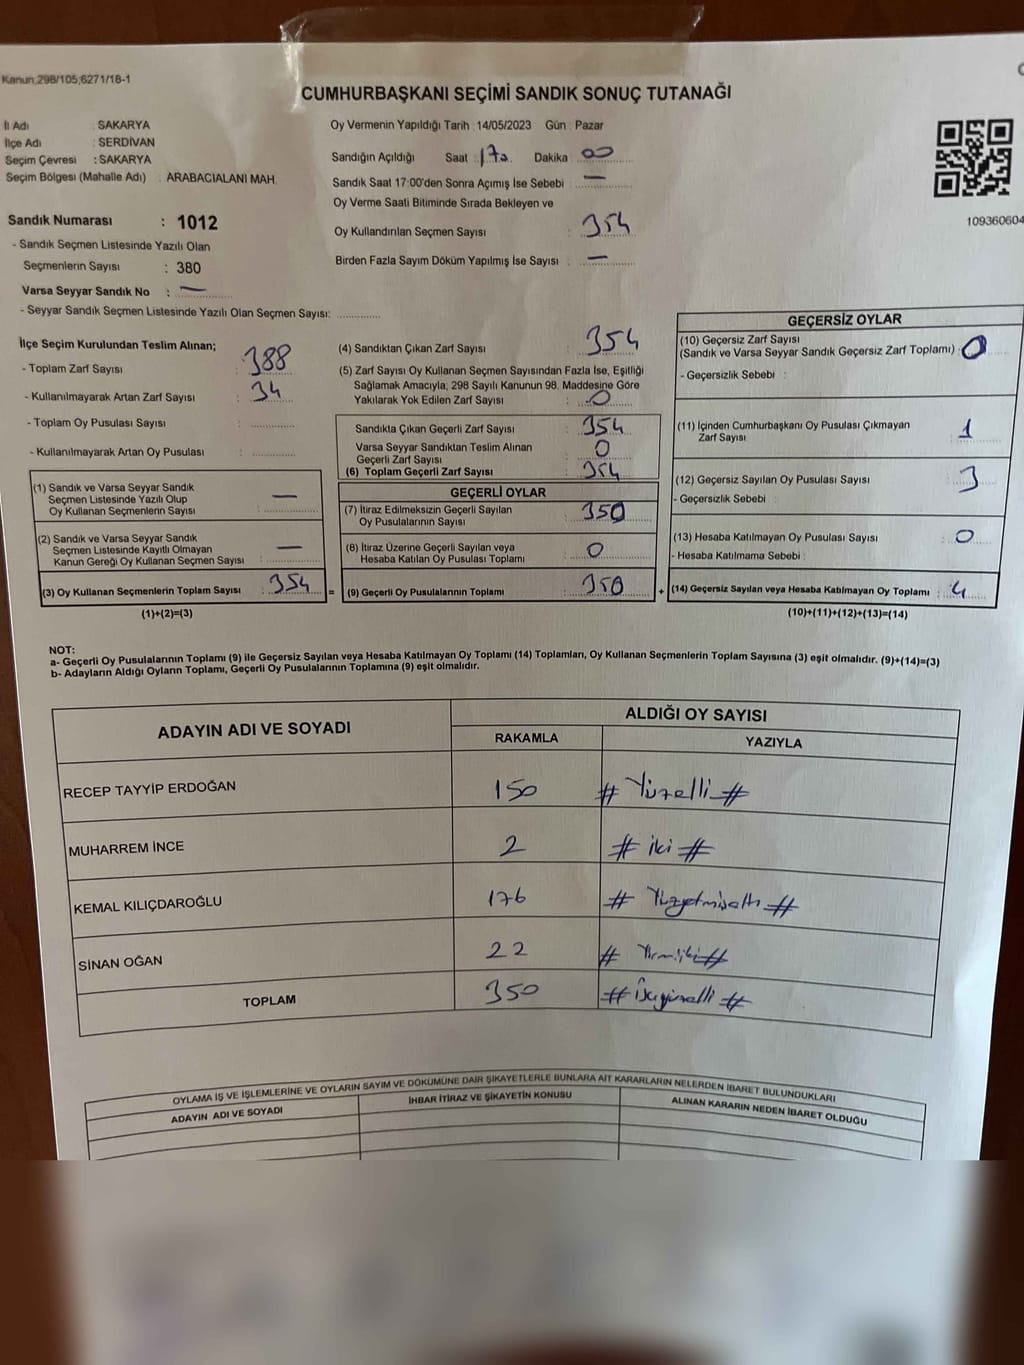 Kanun;298/105;6271/18-1
CUMHURBAŞKANI SEÇİMİ SANDIK SONUÇ TUTANAĞI
İl Adı : SAKARYA
İlçe Adı : SERDİVAN
Seçim Çevresi : SAKARYA
Seçim Bölgesi (Mahalle Adı) : ARABACIALANI MAH.
Sandık Numarası : 1012
- Sandık Seçmen Listesinde Yazılı Olan
Seçmenlerin Sayısı : 380
Varsa Seyyar Sandık No : —
- Seyyar Sandık Seçmen Listesinde Yazılı Olan Seçmen Sayısı:
Oy Vermenin Yapıldığı Tarih : 14/05/2023 Gün : Pazar
Sandığın Açıldığı Saat : Dakika 00
Sandık Saat 17:00'den Sonra Açımış İse Sebebi : —
Oy Verme Saati Bitiminde Sırada Bekleyen ve
Oy Kullandırılan Seçmen Sayısı : 354
Birden Fazla Sayım Döküm Yapılmış İse Sayısı : —
109360604
İlçe Seçim Kurulundan Teslim Alınan;
- Toplam Zarf Sayısı : 388
- Kullanılmayarak Artan Zarf Sayısı : 34
- Toplam Oy Pusulası Sayısı :
- Kullanılmayarak Artan Oy Pusulası :
(1) Sandık ve Varsa Seyyar Sandık
Seçmen Listesinde Yazılı Olup
Oy Kullanan Seçmenlerin Sayısı : —
(2) Sandık ve Varsa Seyyar Sandık
Seçmen Listesinde Kayıtlı Olmayan
Kanun Gereği Oy Kullanan Seçmen Sayısı : —
(3) Oy Kullanan Seçmenlerin Toplam Sayısı : 354 =
(1)+(2)=(3)
(4) Sandıktan Çıkan Zarf Sayısı : 354
(5) Zarf Sayısı Oy Kullanan Seçmen Sayısından Fazla İse, Eşitliği
Sağlamak Amacıyla; 298 Sayılı Kanunun 98. Maddesine Göre
Yakılarak Yok Edilen Zarf Sayısı : 0
Sandıkta Çıkan Geçerli Zarf Sayısı : 354
Varsa Seyyar Sandıktan Teslim Alınan
Geçerli Zarf Sayısı : 0
(6) Toplam Geçerli Zarf Sayısı : 354
GEÇERLİ OYLAR
(7) İtiraz Edilmeksizin Geçerli Sayılan
Oy Pusulalarının Sayısı : 350
(8) İtiraz Üzerine Geçerli Sayılan veya
Hesaba Katılan Oy Pusulası Toplamı : 0
(9) Geçerli Oy Pusulalarının Toplamı : 350 +
GEÇERSİZ OYLAR
(10) Geçersiz Zarf Sayısı
(Sandık ve Varsa Seyyar Sandık Geçersiz Zarf Toplamı) : 0
- Geçersizlik Sebebi :
(11) İçinden Cumhurbaşkanı Oy Pusulası Çıkmayan
Zarf Sayısı : 1
(12) Geçersiz Sayılan Oy Pusulası Sayısı : 3
- Geçersizlik Sebebi :
(13) Hesaba Katılmayan Oy Pusulası Sayısı : 0
- Hesaba Katılmama Sebebi :
(14) Geçersiz Sayılan veya Hesaba Katılmayan Oy Toplamı : 4
(10)+(11)+(12)+(13)=(14)
NOT:
a- Geçerli Oy Pusulalarının Toplamı (9) ile Geçersiz Sayılan veya Hesaba Katılmayan Oy Toplamı (14) Toplamları, Oy Kullanan Seçmenlerin Toplam Sayısına (3) eşit olmalıdır. (9)+(14)=(3)
b- Adayların Aldığı Oyların Toplamı, Geçerli Oy Pusulalarının Toplamına (9) eşit olmalıdır.
ADAYIN ADI VE SOYADI ALDIĞI OY SAYISI
RAKAMLA YAZIYLA
RECEP TAYYİP ERDOĞAN 150 # Yüzelli #
MUHARREM İNCE 2 # iki #
KEMAL KILIÇDAROĞLU 176 # Yüzyetmişaltı #
SİNAN OĞAN 22 # Yirmiiki #
TOPLAM 350 # Üçyüzelli #
OYLAMA İŞ VE İŞLEMLERİNE VE OYLARIN SAYIM VE DÖKÜMÜNE DAİR ŞİKAYETLERLE BUNLARA AİT KARARLARIN NELERDEN İBARET BULUNDUKLARI
ADAYIN ADI VE SOYADI İHBAR İTİRAZ VE ŞİKAYETİN KONUSU ALINAN KARARIN NEDEN İBARET OLDUĞU